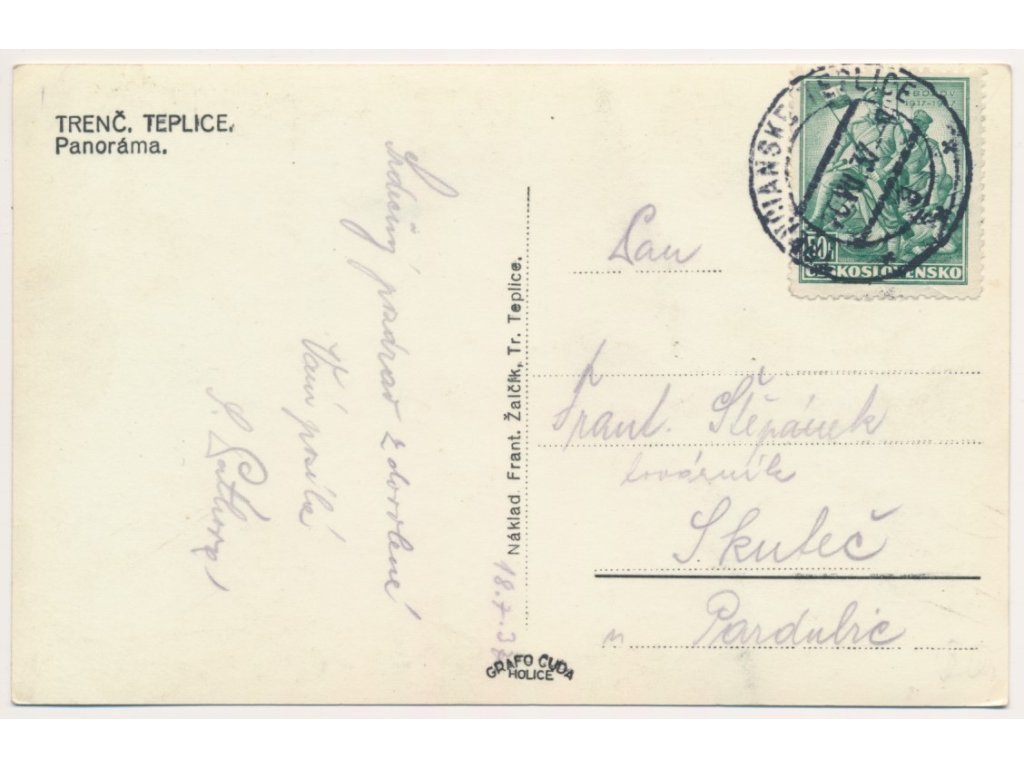 TRENČ. TEPLICE.
Panoráma.
Srdečný pozdrav z dovolené
Vám posílá
Náklad Frant. Žalčík, Tr. Teplice.
18.7.37
GRAFO ČUDA
HOLICE
TEPLICE
1917-1937
50h
ČESKOSLOVENSKO
Pan
Frant. Štěpánek
továrník
Skuteč
u Pardubic